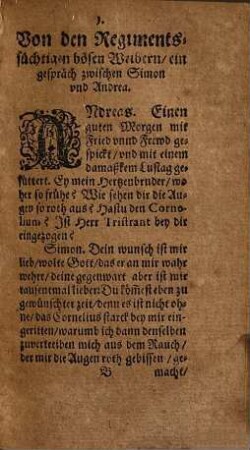 1.
Von den Regiments-
süchtigen bösen Weibern/ ein
gespräch zwischen Simon
vnd Andrea.
ANdreas. Einen
guten Morgen mit
Fried vnnd Frewd ge-
spickt/ vnd mit einem
damaßkem Lustag ge-
füttert. Ey mein Hertzenbruder/ wo-
her so frühe? Wie sehen dir die Au-
gen so roth aus? Hastu den Corne-
lium? Ist Herr Tristrant bey dir
eingezogen?
Simon. Dein wunsch ist mir
lieb/ wolte Gott/ das er an mir wahr
wehre/ deine gegenwart aber ist mir
tausentmal lieber. Du kömst eben zu
gewünschter zeit/ denn es ist nicht oh-
ne/ das Cornelius starck bey mir ein-
geritten/ warumb ich dann denselben
zuvertreiben mich aus dem Rauch/
der mir die Augen roth gebissen/ ge-
B macht/